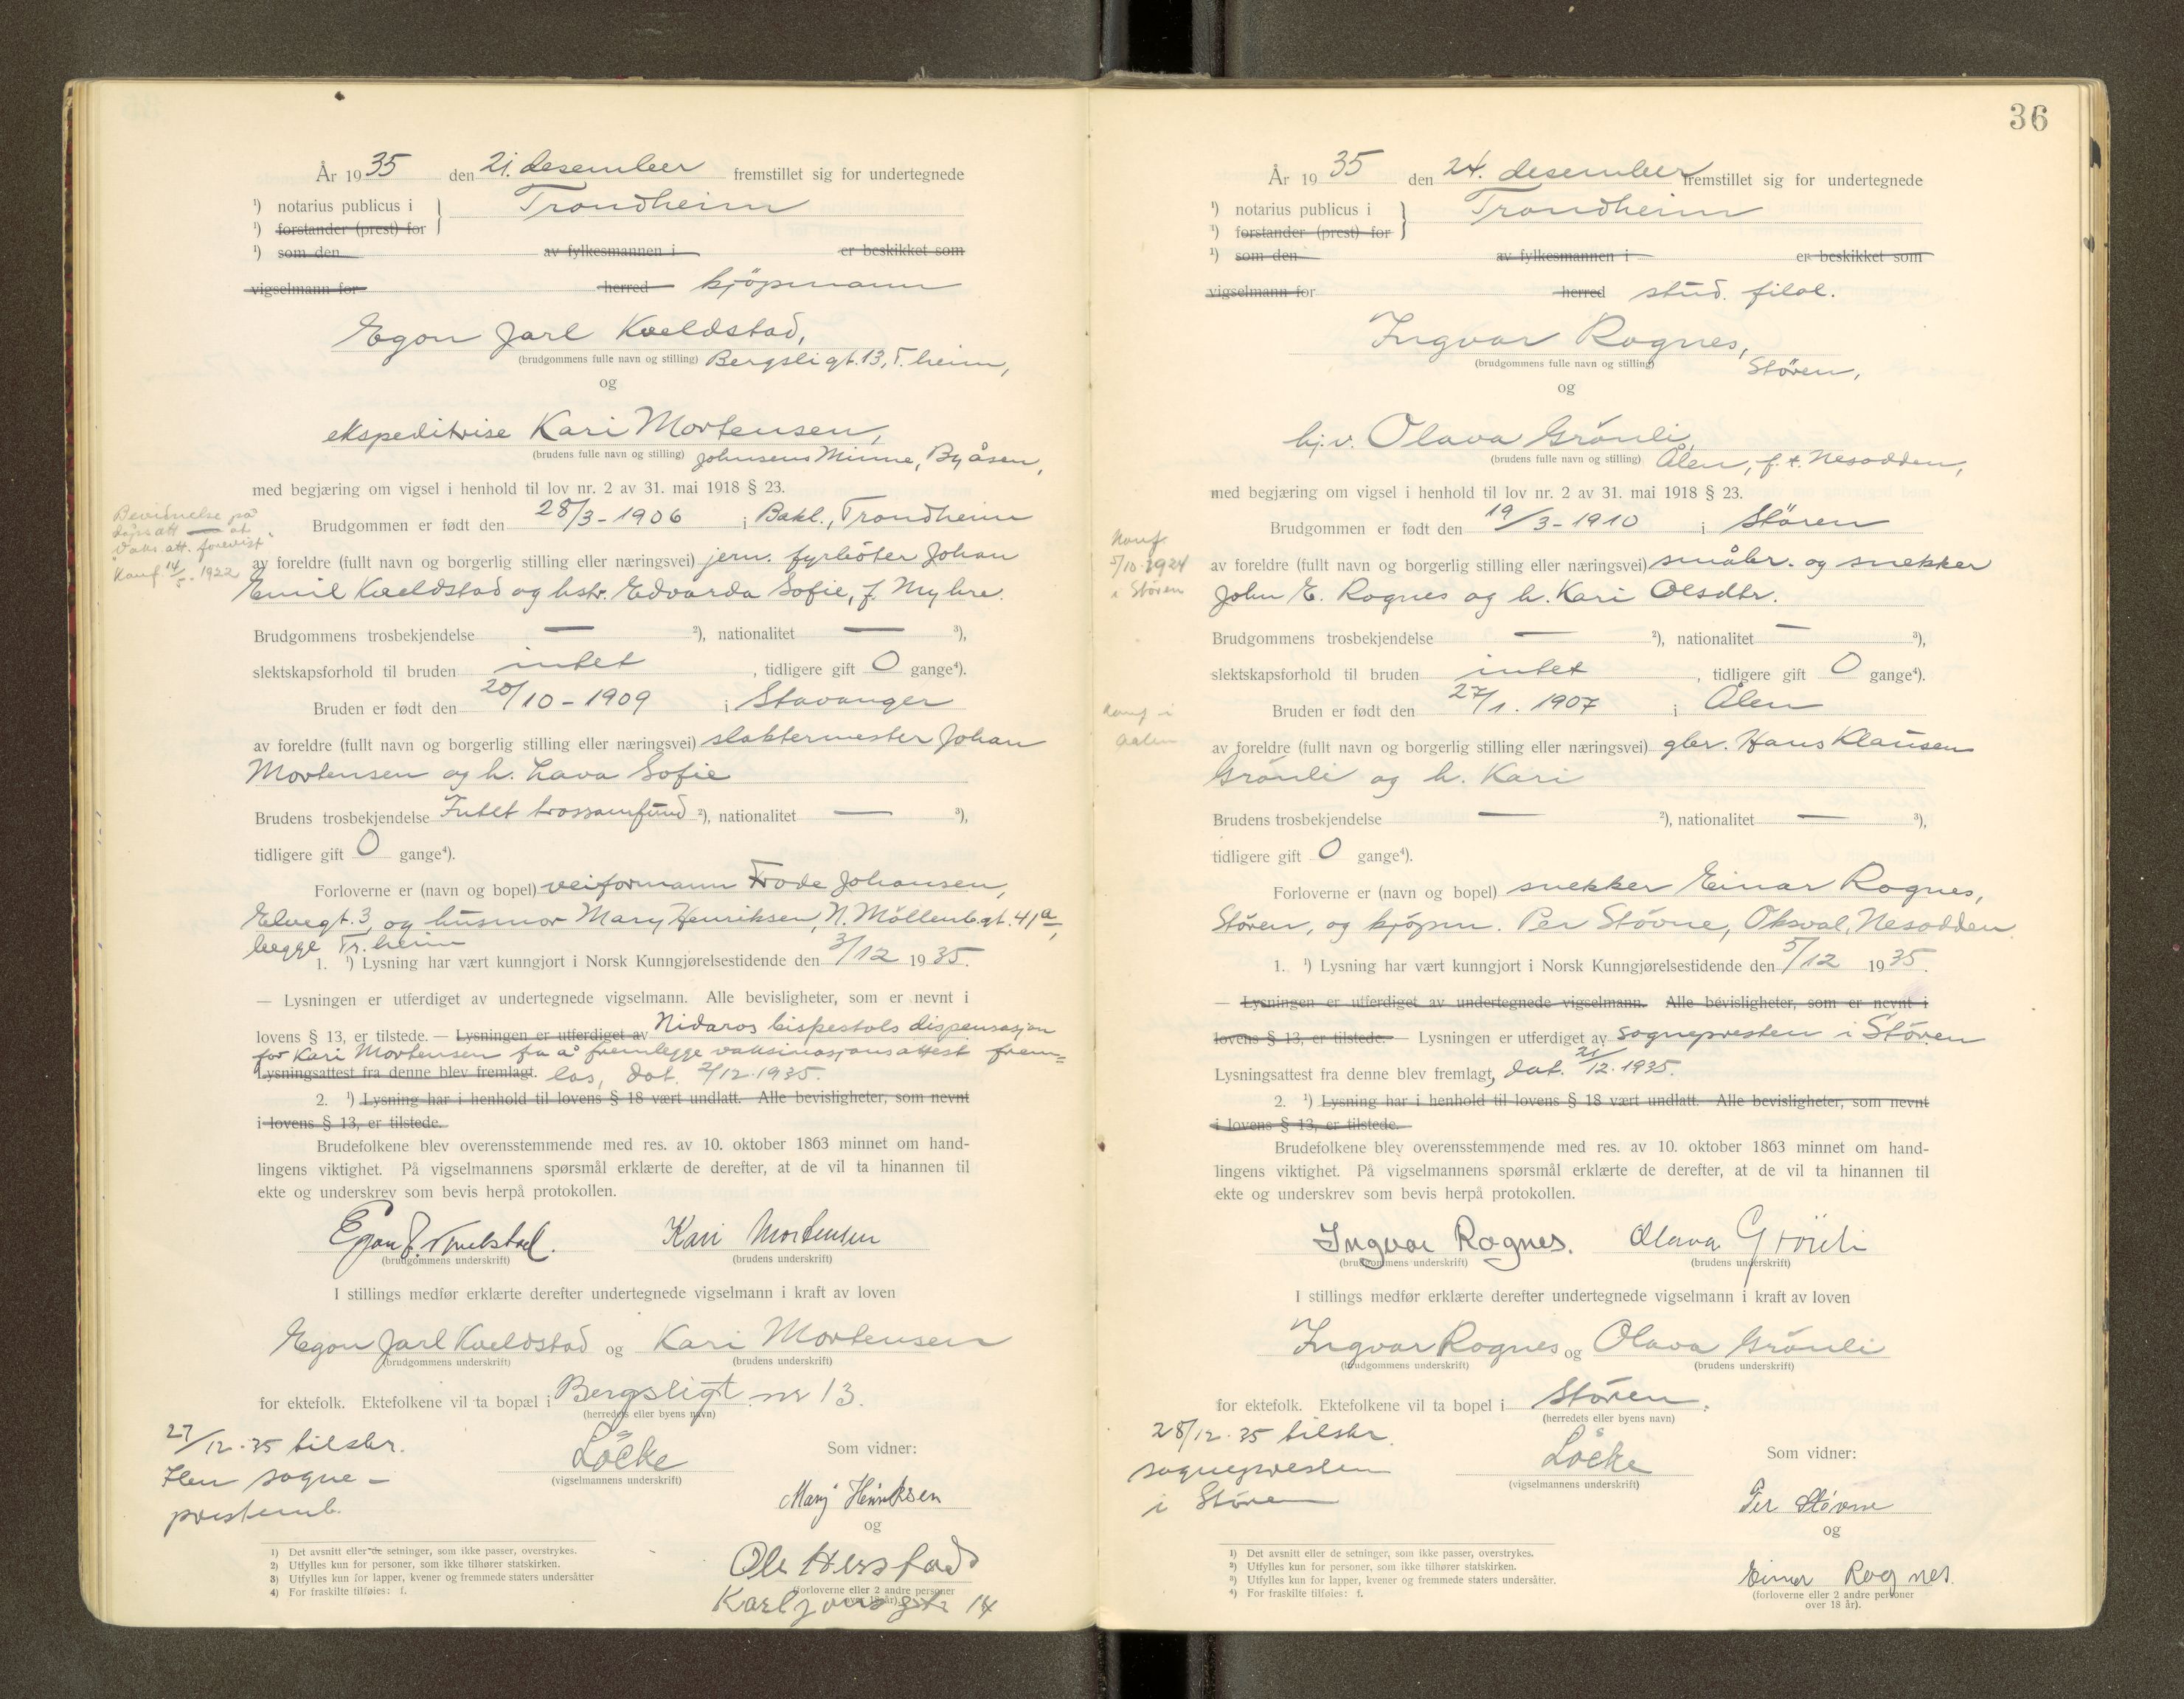 År 1935 den 21. desember fremstillet sig for undertegnede
¹) notarius publicus i } Trondheim
¹) forstander (prest) for
¹) som den av fylkesmannen i er beskikket som
vigselmann for herred kjöpmann
Egon Jarl Kveldstad,
(brudgommens fulle navn og stilling) Bergsligt. 13, T.heim,
og
ekspeditrise Kari Mortensen,
(brudens fulle navn og stilling) Johnsens Minne, Byåsen,
med begjæring om vigsel i henhold til lov nr. 2 av 31. mai 1918 § 23.
Bevidnelse på
dåps att — at
vaks. att. forevist.
Konf. 14/5. 1922
Brudgommen er født den 28/3 - 1906 i Bakl., Trondheim
av foreldre (fullt navn og borgerlig stilling eller næringsvei) jern. fyrböter Johan
Emil Kveldstad og hstr. Edvarda Sofie, f. Myhre.
Brudgommens trosbekjendelse — ²), nationalitet — ³),
slektskapsforhold til bruden intet , tidligere gift 0 gange⁴).
Bruden er født den 20/10 - 1909 i Stavanger
av foreldre (fullt navn og borgerlig stilling eller næringsvei) slaktermester Johan
Mortensen og h. Lava Sofie
Brudens trosbekjendelse Intet trossamfund ²), nationalitet — ³),
tidligere gift 0 gange⁴).
Forloverne er (navn og bopel) veiformann Frode Johansen,
Elvegt. 3, og husmor Mary Henriksen, N. Möllenb.gt. 41a,
begge Tr.heim
1. ¹) Lysning har vært kunngjort i Norsk Kunngjørelsestidende den 3/12 1935.
— Lysningen er utferdiget av undertegnede vigselmann. Alle bevisligheter, som er nevnt i
lovens § 13, er tilstede. — Lysningen er utferdiget av Nidaros bispestols dispensasjon
for Kari Mortensen fra å fremlegge vaksinasjonsattest frem=
Lysningsattest fra denne blev fremlagt. las, dat. 2/12.1935.
2. ¹) Lysning har i henhold til lovens § 18 vært undlatt. Alle bevisligheter, som nevnt
i lovens § 13, er tilstede.
Brudefolkene blev overensstemmende med res. av 10. oktober 1863 minnet om hand-
lingens viktighet. På vigselmannens spørsmål erklærte de derefter, at de vil ta hinannen til
ekte og underskrev som bevis herpå protokollen.
Egon J. Kveldstad. Kari Mortensen
(brudgommens underskrift) (brudens underskrift)
I stillings medfør erklærte derefter undertegnede vigselmann i kraft av loven
Egon Jarl Kveldstad og Kari Mortensen
(brudgommens underskrift) (brudens underskrift)
for ektefolk. Ektefolkene vil ta bopæl i Bergsligt nr 13.
(herredets eller byens navn)
27/12.35 tilskr.
Ilen sogne-
prestemb.
Löcke
(vigselmannens underskrift)
Som vidner:
Mary Henriksen
og
Ole Herstad
(forloverne eller 2 andre personer
over 18 år).
Karl Jonsgt 14
1) Det avsnitt eller de setninger, som ikke passer, overstrykes.
2) Utfylles kun for personer, som ikke tilhører statskirken.
3) Utfylles kun for lapper, kvener og fremmede staters undersåtter
4) For fraskilte tilføies: f.
36
År 1935 den 24. desember fremstillet sig for undertegnede
¹) notarius publicus i } Trondheim
¹) forstander (prest) for
¹) som den av fylkesmannen i er beskikket som
vigselmann for herred stud. filol.
Ingvar Rognes,
(brudgommens fulle navn og stilling) Stören,
og
hj.v. Olava Grönli,
(brudens fulle navn og stilling) Ålen, f. t. Nesodden,
med begjæring om vigsel i henhold til lov nr. 2 av 31. mai 1918 § 23.
Konf.
5/10.1924
i Stören
Brudgommen er født den 19/3 - 1910 i Stören
av foreldre (fullt navn og borgerlig stilling eller næringsvei) småbr. og snekker
John E. Rognes og h. Kari Olsdtr.
Brudgommens trosbekjendelse — ²), nationalitet — ³),
slektskapsforhold til bruden intet , tidligere gift 0 gange⁴).
Konf i
Aalen
Bruden er født den 27/1. 1907 i Ålen
av foreldre (fullt navn og borgerlig stilling eller næringsvei) gbr. Hans Klausen
Grönli og h. Kari
Brudens trosbekjendelse — ²), nationalitet — ³),
tidligere gift 0 gange⁴).
Forloverne er (navn og bopel) snekker Einar Rognes,
Stören, og kjöpm. Per Stövne, Oksval, Nesodden.
1. ¹) Lysning har vært kunngjort i Norsk Kunngjørelsestidende den 5/12 1935.
— Lysningen er utferdiget av undertegnede vigselmann. Alle bevisligheter, som er nevnt i
lovens § 13, er tilstede. — Lysningen er utferdiget av sognepresten i Stören
Lysningsattest fra denne blev fremlagt, dat. 21/12.1935.
2. ¹) Lysning har i henhold til lovens § 18 vært undlatt. Alle bevisligheter, som nevnt
i lovens § 13, er tilstede.
Brudefolkene blev overensstemmende med res. av 10. oktober 1863 minnet om hand-
lingens viktighet. På vigselmannens spørsmål erklærte de derefter, at de vil ta hinannen til
ekte og underskrev som bevis herpå protokollen.
Ingvar Rognes. Olava Grönli
(brudgommens underskrift) (brudens underskrift)
I stillings medfør erklærte derefter undertegnede vigselmann i kraft av loven
Ingvar Rognes og Olava Grönli
(brudgommens underskrift) (brudens underskrift)
for ektefolk. Ektefolkene vil ta bopel i Stören.
(herredets eller byens navn)
28/12.35 tilskr.
sognepresten
i Stören
Löcke
(vigselmannens underskrift)
Som vidner:
Per Stövne
og
Einar Rognes.
(forloverne eller 2 andre personer
over 18 år).
¹) Det avsnitt eller de setninger, som ikke passer, overstrykes.
²) Utfylles kun for personer, som ikke tilhører statskirken.
³) Utfylles kun for lapper, kvener og fremmede staters undersåtter.
⁴) For fraskilte tilføies: f.